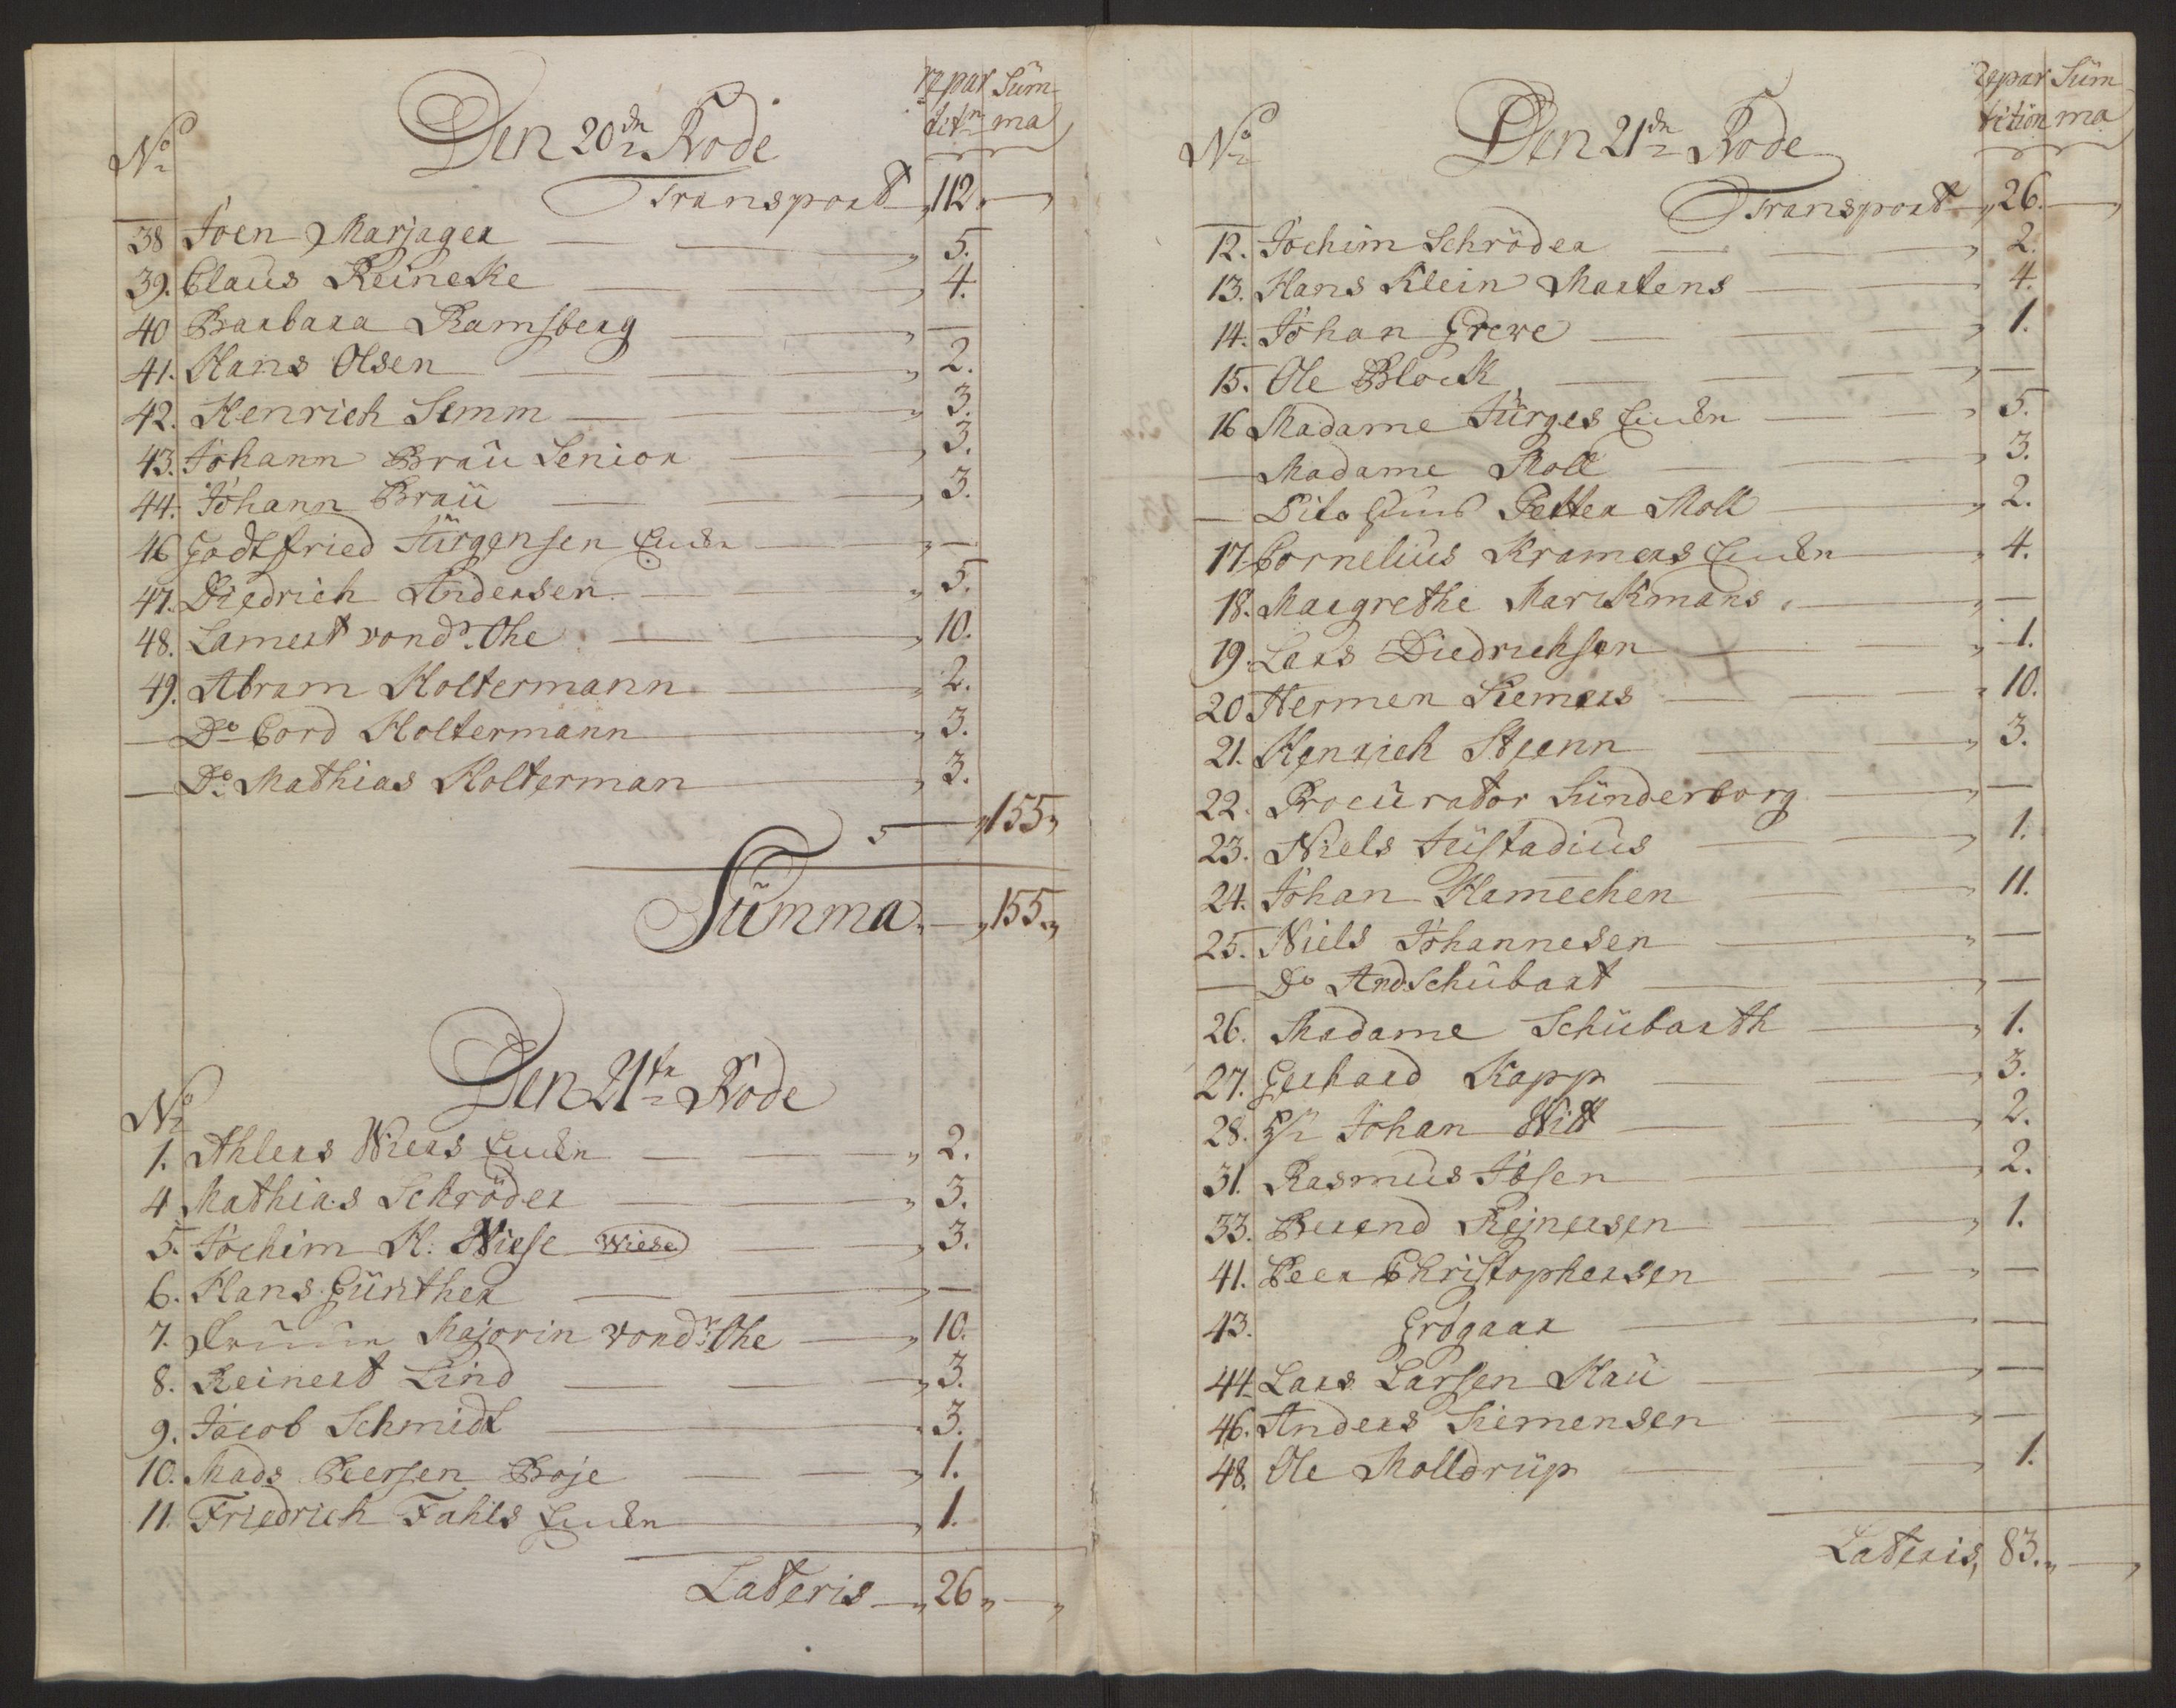 No
Den 20de Rode
repar
titn
Sum
ma
Transport 112. —
38 Joen Marjager — 5.
39. Claus Reineke — 4.
40 Barbara Ramsberg — —
41. Hans Olsen — 2.
42. Henrich Simm — 3.
43. Johann Braü Senior — 3.
44. Johann Braü — 3.
46 Godtfried Jürgensen Enken — —
47. Diedrich Andersen — 5.
48. Lamert vondr. Ohe — 10.
49. Abram Holtermann — 2.
— Do Cord Holtermann — 3.
— Do Mathias Holterman — 3.
— 155
Summa — 155
Den 21te Rode
No
1. Ahlers Wiers Enken — 2.
4 Mathias Schröder — 3.
5. Jochim H. Wiese Wiese — 3.
6. Hans Günther — —
7. Majorin vondr. Ohe — 10.
8. Reinert Lind — 3.
9. Jacob Schmidt — 3.
10. Mads Peersen Boje — 1.
11. Friedrich Fahls Enken — 1.
Lateris — 26 —
No
Den 21de Rode
repar
tition
Sum
ma
Transport 26. —
12. Jochim Schröder — 2.
13. Hans Klein Martens — 4.
14. Johan Greve — 1.
15. Ole Block — —
16 Madame Jürges Enken — 5.
— Madame Moll — 3.
— Dito Petter Moll — 2.
17. Cornelius Kramers Enken — 4.
18. Margrethe Marckmans — —
19. Lars Diedrichsen — 1.
20 Hermen Siemers — 10.
21. Henrich Steenn — 3.
22. Procurator Sünderborg — —
23. Niels Justadius — 1.
24. Johan Hamechen — 11.
25. Niels Johannesen — —
— Do And. Schubart — —
26. Madame Schübarth — 1.
27. Gerhard Kapp — 3.
28. Sr Johan Witt — 2.
31. Rasmus Ibsen — 2.
33. Berend Rejnersen — 1.
41. Peer Christophersen — —
43. Grøgaar — —
44. Lars Larsen Hau — —
46. Anders Siemensen — —
48. Ole Molldrüp — 1.
Lateris, 83. —